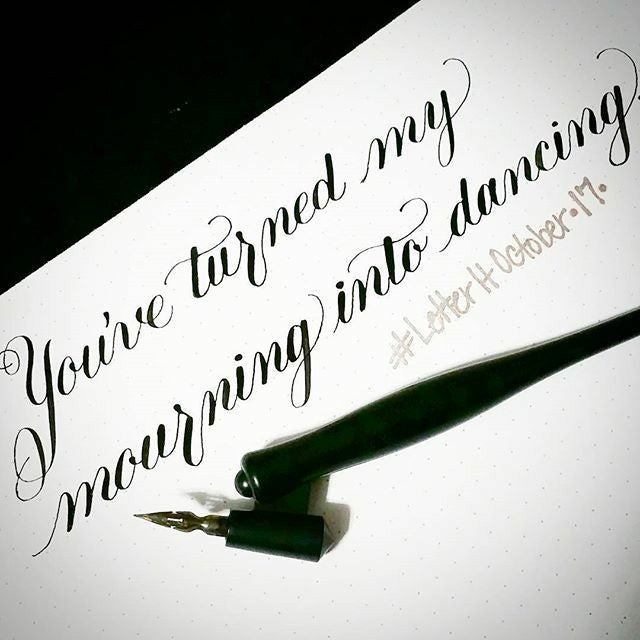 You've turned my
mourning into dancing.
#LetterItOctober.17.